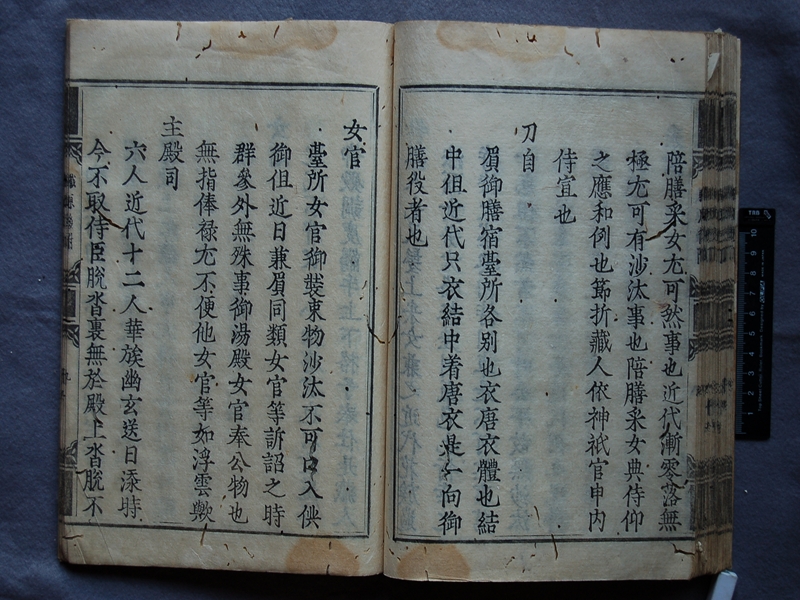 陪膳采女尤可然事也近代漸零落無
極尤可有沙汰事也陪膳采女典侍仰
之應和例也節折藏人依神祇官申内
侍宣也
刀自
御膳宿臺所各別也衣唐衣體也結
中但近代只衣結中着唐衣是一向御
膳役者也
女官
臺所女官御裝束物沙汰不可口入供
御但近日兼眉同類女官等訴詔之時
群參外無殊事御湯殿女官奉公物也
無指俸禄尤不便他女官等如浮雲歟
主殿司
六人近代十二人華族幽玄送日添時
今不取侍臣脫沓裏無於殿上沓脫不